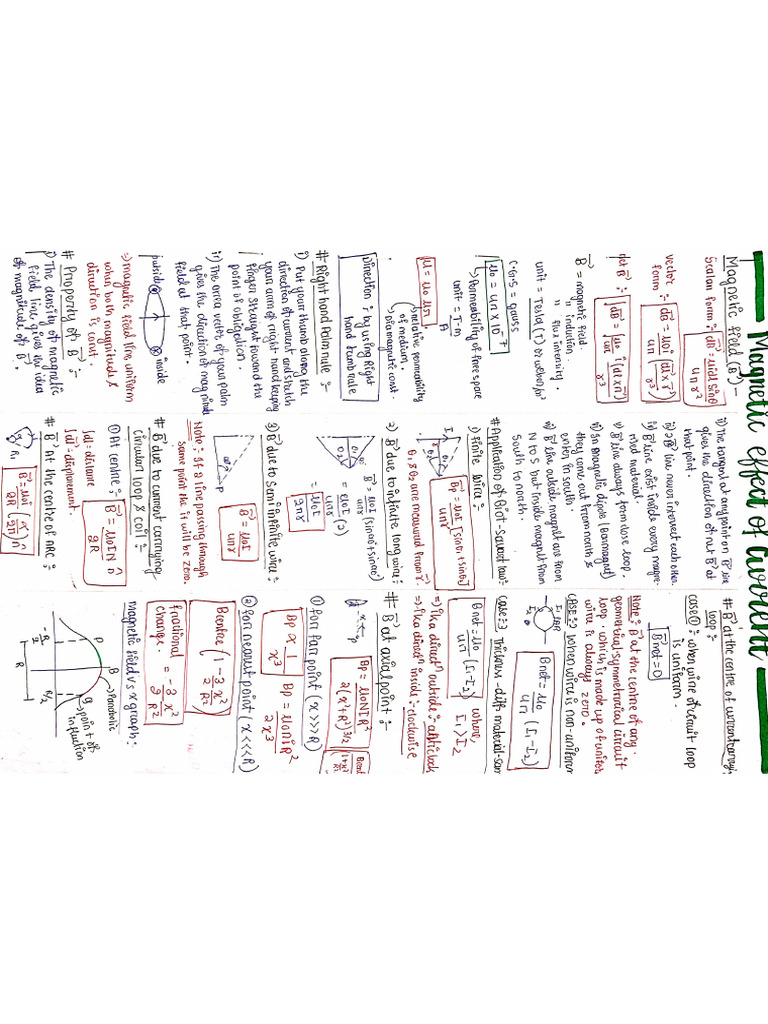 Magnetic effect of current
Magnetic field (B⃗) –
Scalar form :- dB⃗ = μ₀idl sinθ / 4πr²
vector form :- dB⃗ = μ₀i (dl × r⃗) / 4π r³
net B⃗ :- ∫dB⃗ = ∫ μ₀ i(dl×r⃗) / 4π r³
B⃗ = magnetic field.
" " induction.
" flux intensity.
unit = Tesla (T) or weber/m²
C·G·S = gauss
μ₀ = 4π × 10⁻⁷
↳ Permeability of free space
unit = T-m / A
μ = μ₀ μr
↳ relative permeability of medium.
↳ Dia magnetic const.
Direction :- by using Right hand thumb rule
# Right hand Palm rule :-
i) Put your thumb along the
direction of current and stretch
your arm of right hand keeping
finger straight toward the
point of obligation.
ii) The area vector of your palm
gives the direction of mag. n
field at that point.
outside inside
⇒ magnetic field line uniform
when both magnitude &
direction is const.
# Property of B⃗ :-
i) The density of magnetic
field line gives the idea
of magnitude of B⃗.
ii) The tangent at any point on B⃗ line
gives the direction of net B⃗ at
that point.
iii) B⃗ line never intersect each other.
iv) B⃗ line exist inside every magne-
tised material.
v) B⃗ line always form close loop.
vi) In magnetic dipole (Bar magnet)
they come out from north &
enter in south.
B⃗ line outside magnet are from
N to S but inside magnet from
South to north.
# Application of Biot-Savart law :-
1) finite wire :-
Bp = μ₀I [sinθ₁ + sinθ₂] / 4πr
θ₁ & θ₂ are measured from r⃗.
2) B⃗ due to infinite long wire :-
B⃗ = μ₀I [sin90° + sin90°] / 4πr
= μ₀I (2) / 4πr
= μ₀I / 2πr
3) B⃗ due to Semi infinite wire :-
B⃗ = μ₀I / 4πr
Note :- If a line passing through
same point the it will be zero.
# B⃗ due to current carrying
circular loop & coil :-
① At centre :- B⃗ = μ₀IN n̂ / 2R
∫dl = distance
∫dl⃗ = displacement.
# B⃗ at the centre of ARC :-
B⃗ = μ₀i (α / 2π) n̂ / 2R
# B⃗ at the centre of current carrying
loop :-
case ① :- when wire of circuit loop
is uniform.
B⃗net = 0
Note :- B⃗ at the centre of any
geometrical symmetrical circuit
loop, which is made up of uniform
wire is always zero.
CASE :- 2) When wire is non-uniform
Bnet = μ₀ (I₁ - I₂) / 4π
CASE :- 3) Thickness - diff material - same
Bnet = μ₀ (I₁ - I₂) / 4π where, I₁ > I₂
⇒ I ka directⁿ outside :- anticlock
⇒ I ka directⁿ inside :- clockwise
# B⃗ at axial point :-
Bp = μ₀NIR² / 2(x²+R²)^3/2
① For far point (x >>> R)
Bp ∝ 1 / x³
Bp = μ₀NiR² / 2x³
② For nearest point (x <<< R)
Bcentre (1 - 3/2 x²/R²)
fractional change = -3/2 x²/R²
magnetic field v/s x graph :-
B
P
Parabolic
Q point of
inflection
-R/2 R/2
R